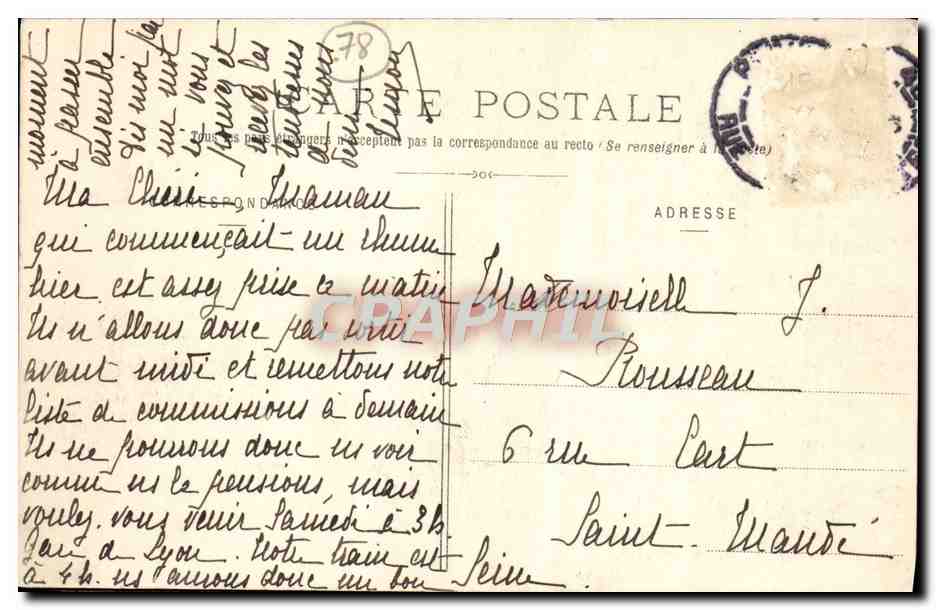 78
CARTE POSTALE
Tous les pays étrangers n'acceptent pas la correspondance au recto (Se renseigner à la Poste)
CORRESPONDANCE
ADRESSE
Ma Chérie, Maman
qui commençait un rhume
hier est assez prise ce matin
Ns n'allons donc pas sortir
avant midi et remettons notre
liste de commissions à demain
Ns ne pourrons donc ns voir
comme ns le pensions, mais
voulez-vous venir Samedi à 3h
gare de Lyon. Notre train est
à 4h. ns aurons donc un bon
moment
à passer
ensemble
Dis moi par
un mot
si vous
pouvez et
recevez les
tendresses
de ton
Mademoiselle J.
Rousseau
6 rue Cart
Saint-Mandé
Seine.
RUE
CPAPHIL